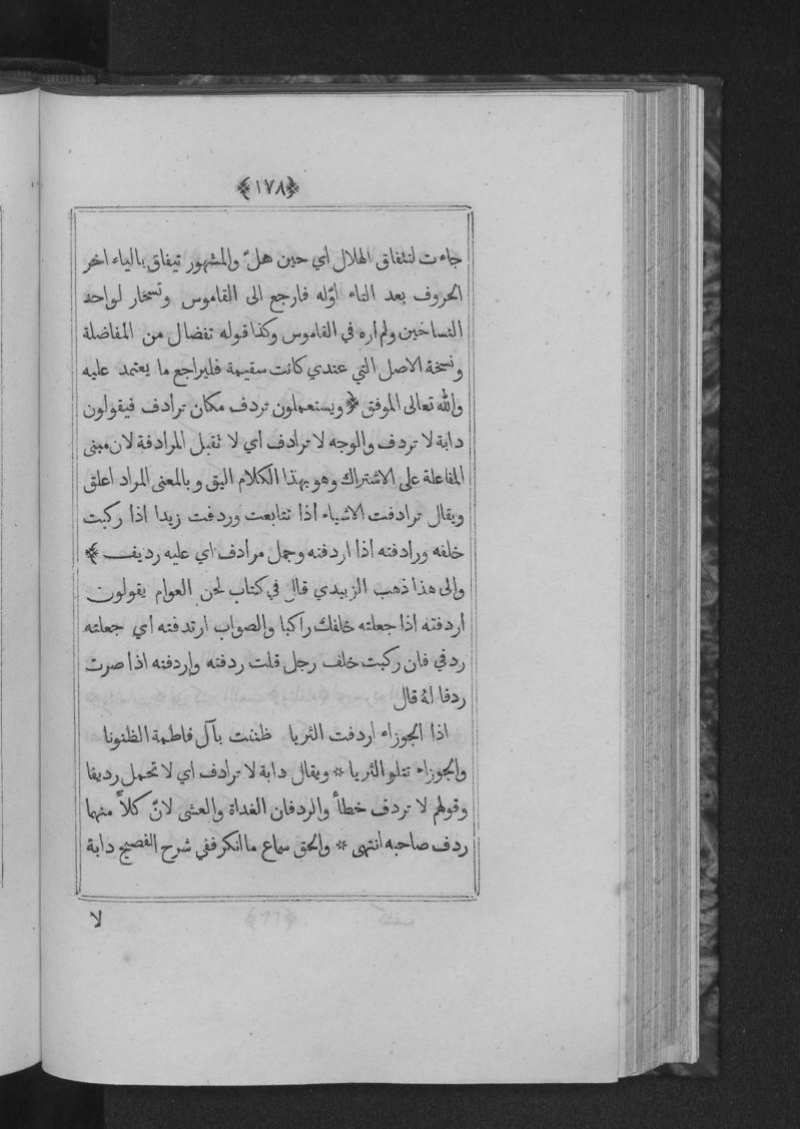 ﴿١٧٨﴾
جاءت لتتفاق الهلال اي حين هلّ والمشهور تيفاق بالياء اخر
الحروف بعد التاء اوّله فارجع الى القاموس وتسخار لواحد
النساخين ولم اره في القاموس وكذا قوله تفضال من المفاضلة
ونسخة الاصل التي عندي كانت سقيمة فليراجع ما يعتمد عليه
والله تعالى الموفق ﴿ ويستعملون تردف مكان ترادف فيقولون
دابة لا تردف والوجه لا ترادف اي لا تقبل المرادفة لان مبنى
المفاعلة على الاشتراك وهو بهذا الكلام اليق وبالمعنى المراد اعلق
ويقال ترادفت الاشياء اذا تتابعت وردفت زيدا اذا ركبت
خلفه ورادفته اذا اردفته وجمل مرادف اي عليه رديف ﴾
والى هذا ذهب الزبيدي قال في كتاب لحن العوام يقولون
اردفته اذا جعلته خلفك راكبا والصواب ارتدفته اي جعلته
ردفي فان ركبت خلف رجل قلت ردفته واردفته اذا صرت
ردفا لهُ قال
اذا الجوزاء اردفت الثريا ظننت بآل فاطمة الظنونا
والجوزاء تتلو الثريا * ويقال دابة لا ترادف اي لا تحمل رديفا
وقولهم لا تردف خطأ والردفان الغداة والعشى لانّ كلاًّ منهما
ردف صاحبه انتهى * والحق سماع ما انكر ففي شرح الفصيح دابة
لا